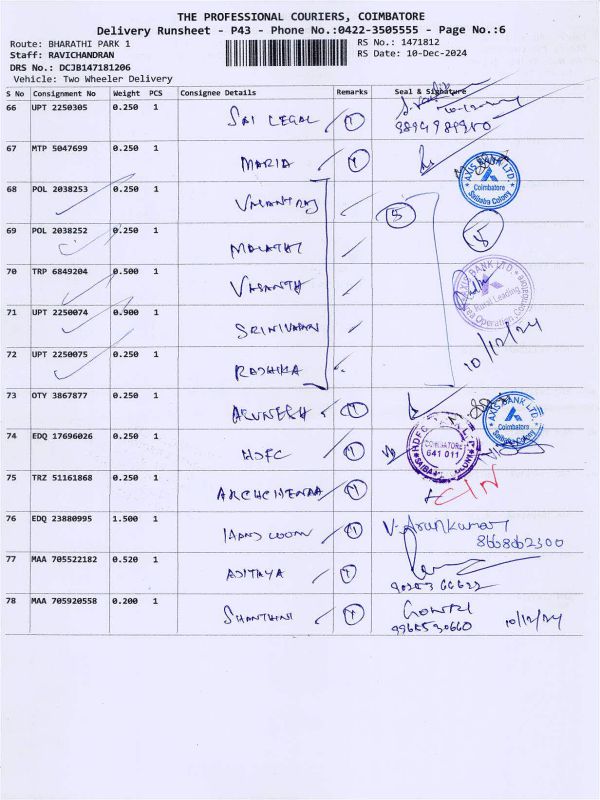 THE PROFESSIONAL COURIERS, COIMBATORE
Delivery Runsheet - P43 - Phone No.:0422-3505555 - Page No.:6
Route: BHARATHI PARK 1 RS No.: 1471812
Staff: RAVICHANDRAN RS Date: 10-Dec-2024
DRS No.: DCJB147181206
Vehicle: Two Wheeler Delivery
S No Consignment No Weight PCS Consignee Details Remarks Seal & Signature
66 UPT 2250305 0.250 1 SAI LEGAL 1
9894989950
67 MTP 5047699 0.250 1 MARIA 1
AXIS BANK LTD. Coimbatore Saibaba Colony
68 POL 2038253 0.250 1 5
69 POL 2038252 0.250 1 MALATHI 5
70 TRP 6849204 0.500 1 VASANTH
AXIS BANK LTD. Rural Lending Area Operation Coimbatore
71 UPT 2250074 0.900 1 SRINIVASAN
10/12/24
72 UPT 2250075 0.250 1 RADHIKA
73 OTY 3867877 0.250 1 ARUNESH 1
AXIS BANK LTD. Coimbatore Saibaba Colony
74 EDQ 17696026 0.250 1 HDFC 1
COIMBATORE 641 011
75 TRZ 51161868 0.250 1 1
76 EDQ 23880995 1.500 1 1 V. Arunkumar
8668062300
77 MAA 705522182 0.520 1 ADITHYA 1
78 MAA 705920558 0.200 1 SHANTHINI 1 Gowri
9965530660 10/12/24